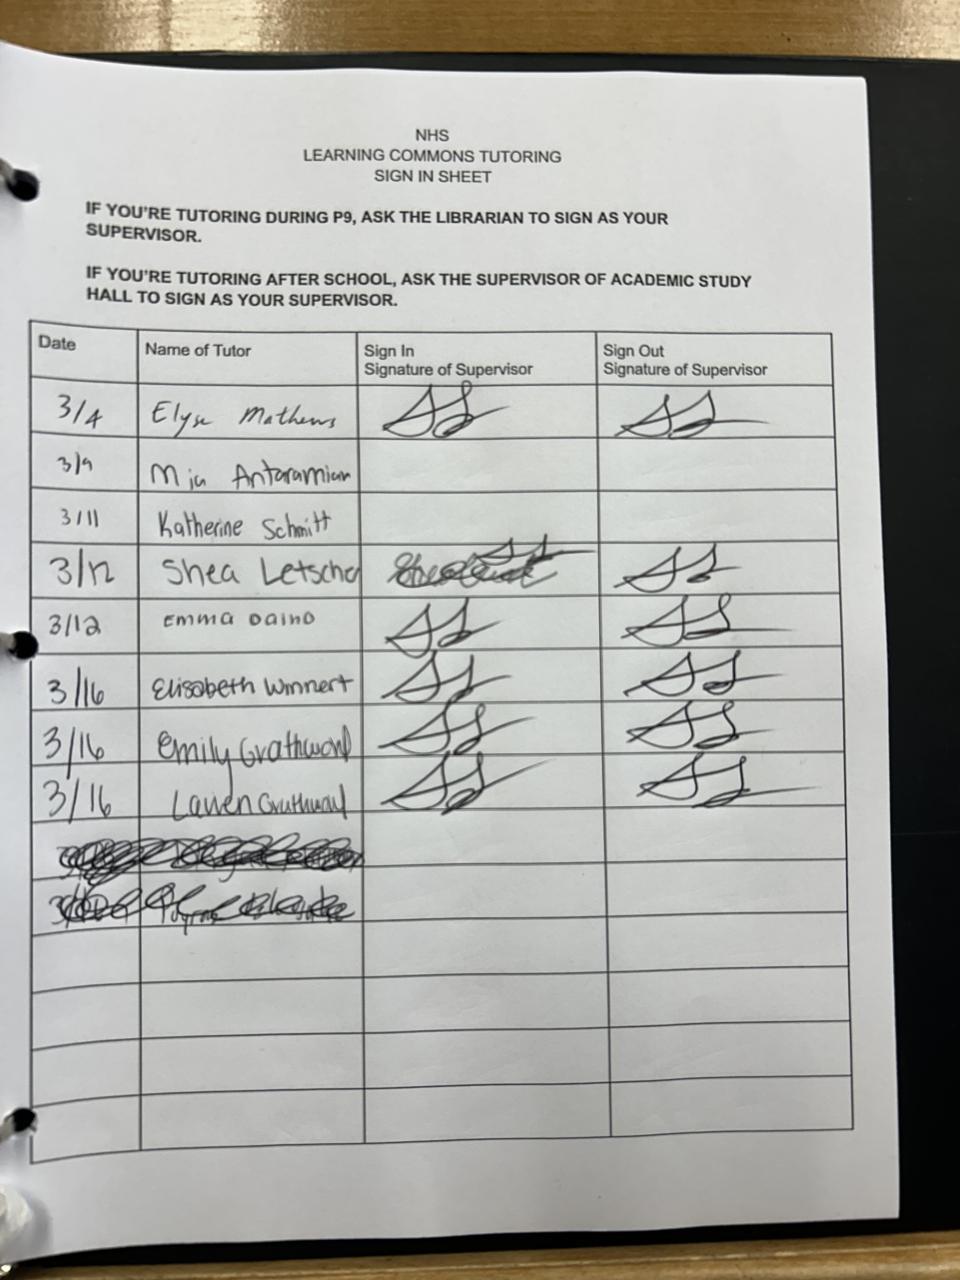 NHS
LEARNING COMMONS TUTORING
SIGN IN SHEET
IF YOU'RE TUTORING DURING P9, ASK THE LIBRARIAN TO SIGN AS YOUR
SUPERVISOR.
IF YOU'RE TUTORING AFTER SCHOOL, ASK THE SUPERVISOR OF ACADEMIC STUDY
HALL TO SIGN AS YOUR SUPERVISOR.
Date Name of Tutor Sign In Signature of Supervisor Sign Out Signature of Supervisor
3/4 Elyse Mathews
3/9 Mia Antaramian
3/11 Katherine Schmitt
3/12 Shea Letscho
3/12 Emma Daino
3/16 Elisabeth Winnert
3/16 Emily Grathwohl
3/16 Lauren Grathwohl